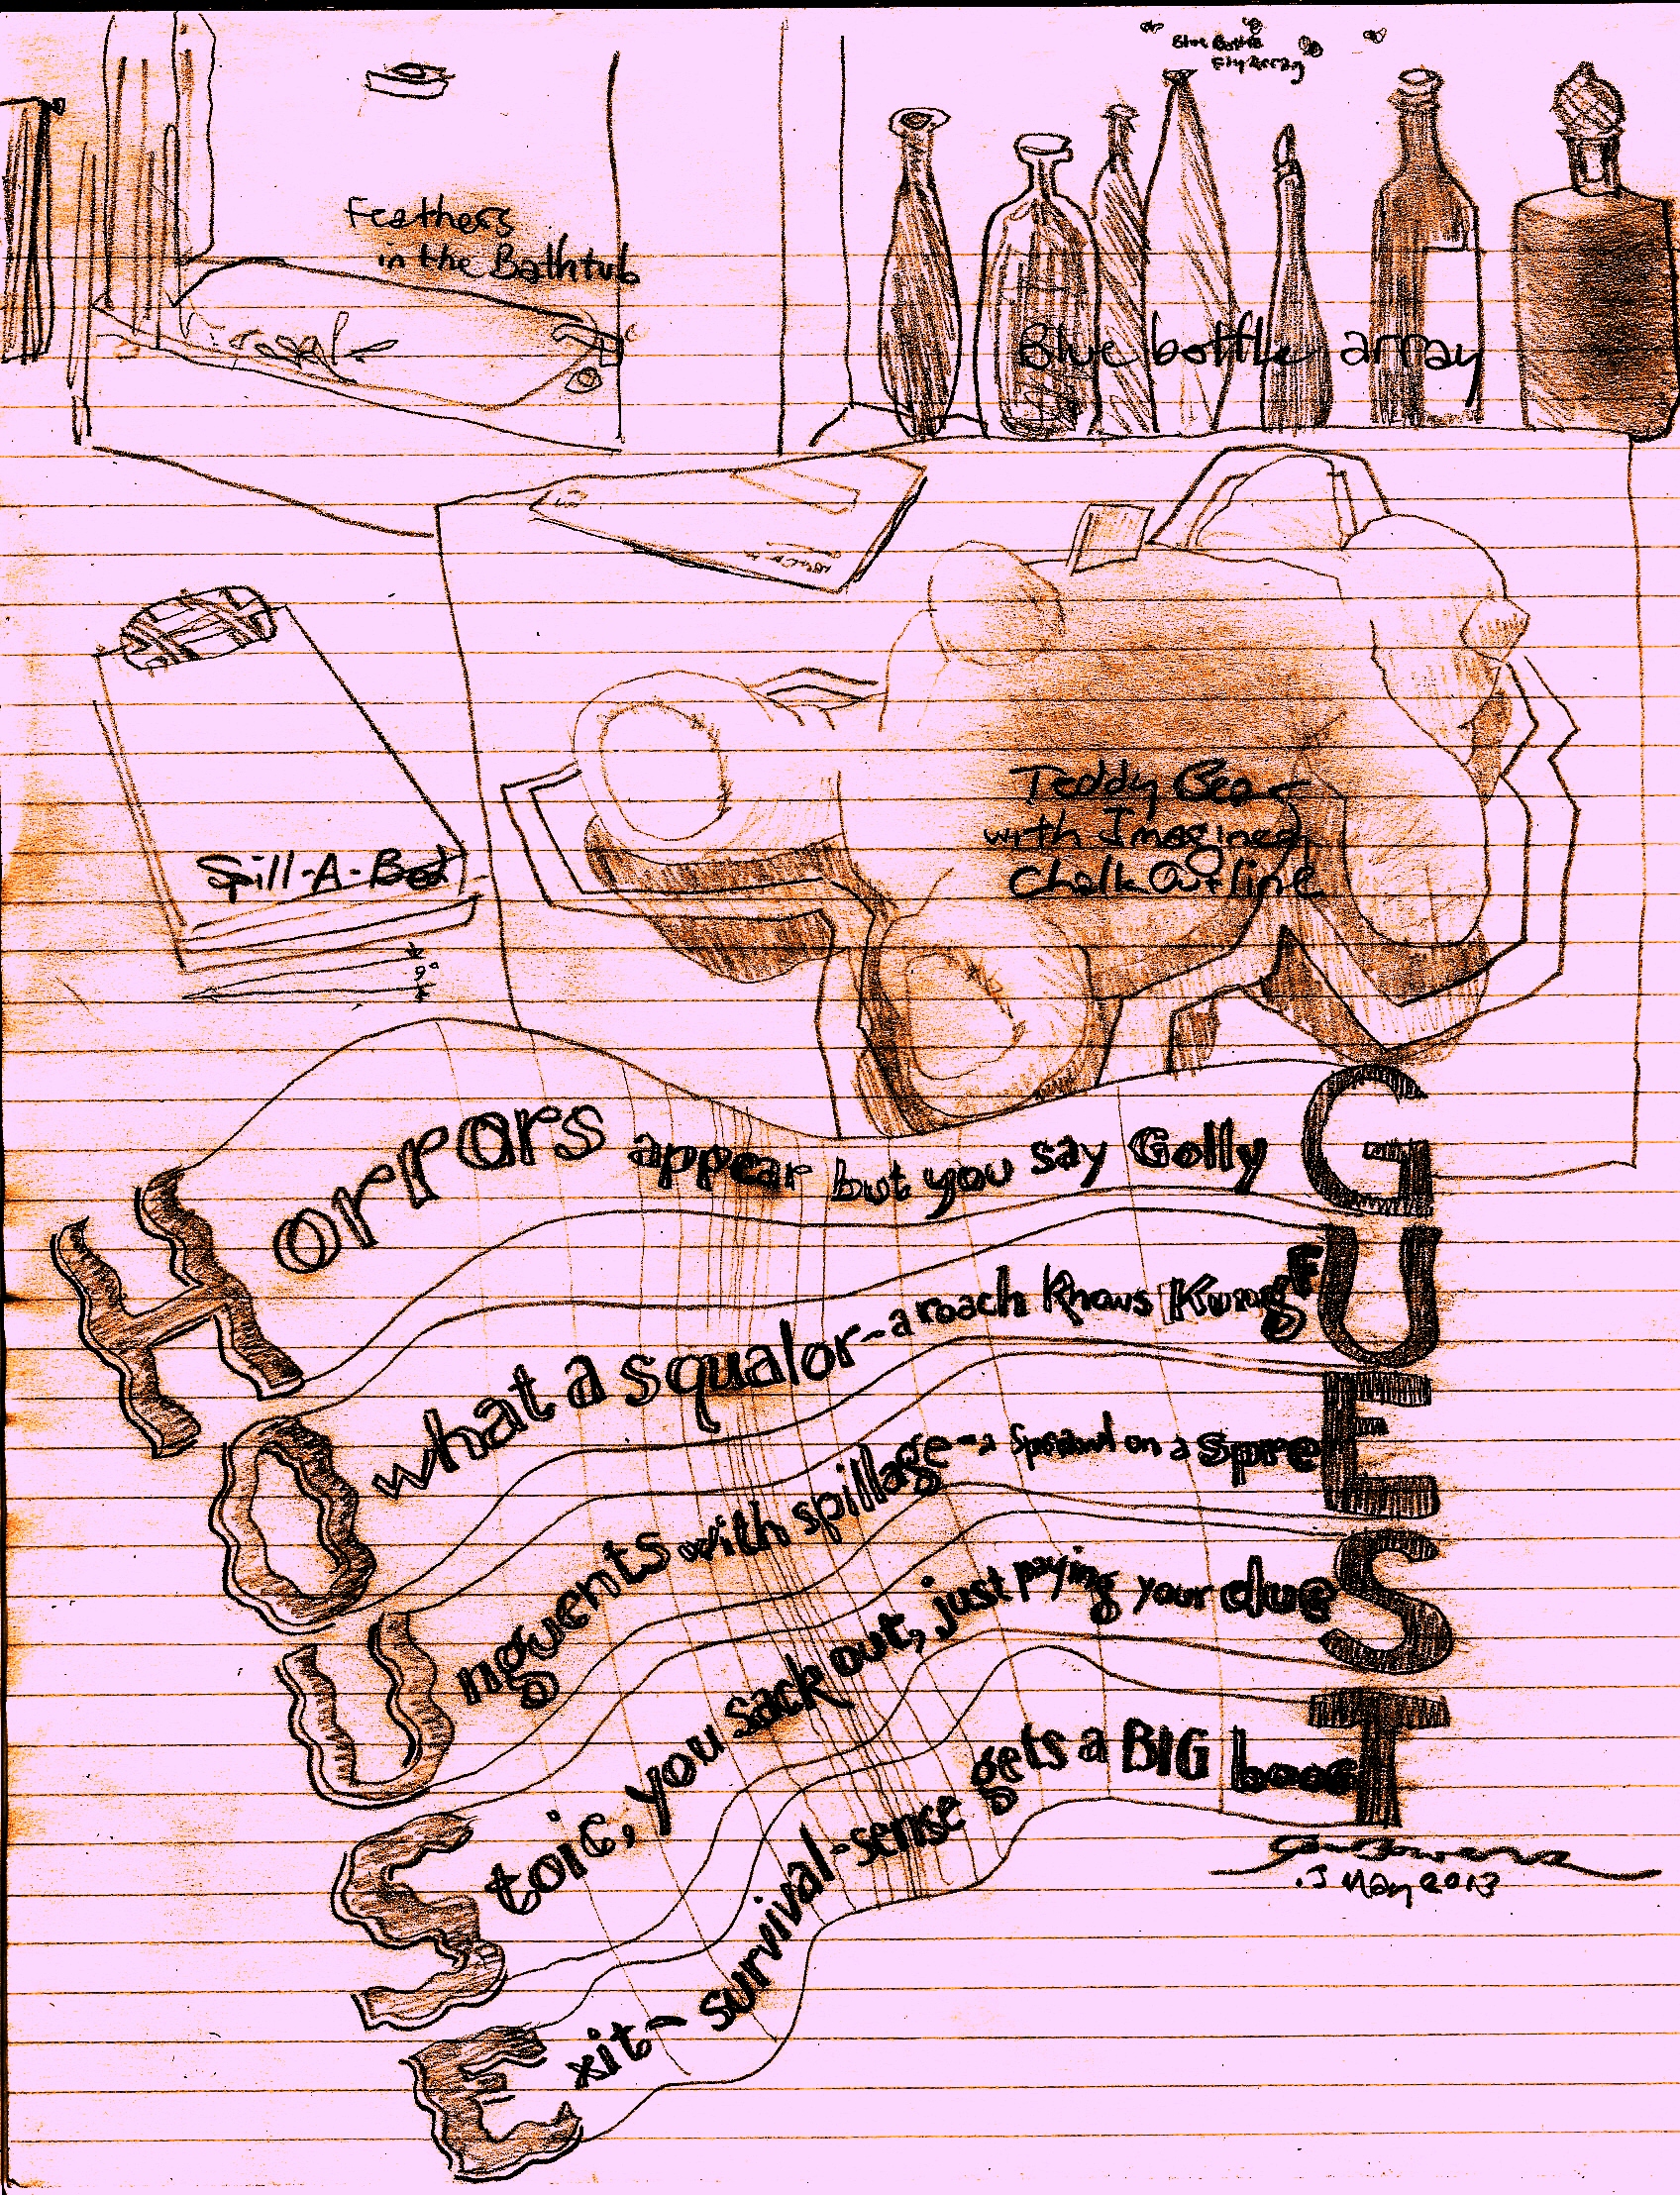 Blue Bottle
Fly Array
Feathers
in the Bathtub
Blue bottle array
Teddy Bear
with Imagined
Chalk Outline
Spill-A-Bed
9°
Horrors appear but you say Golly G
O what a squalor - a roach knows Kung FU
Unguents with spillage - a sprawl on a spreE
Stoic, you sack out, just paying your dueS
Exit - survival-sense gets a BIG boosT
3 May 2013